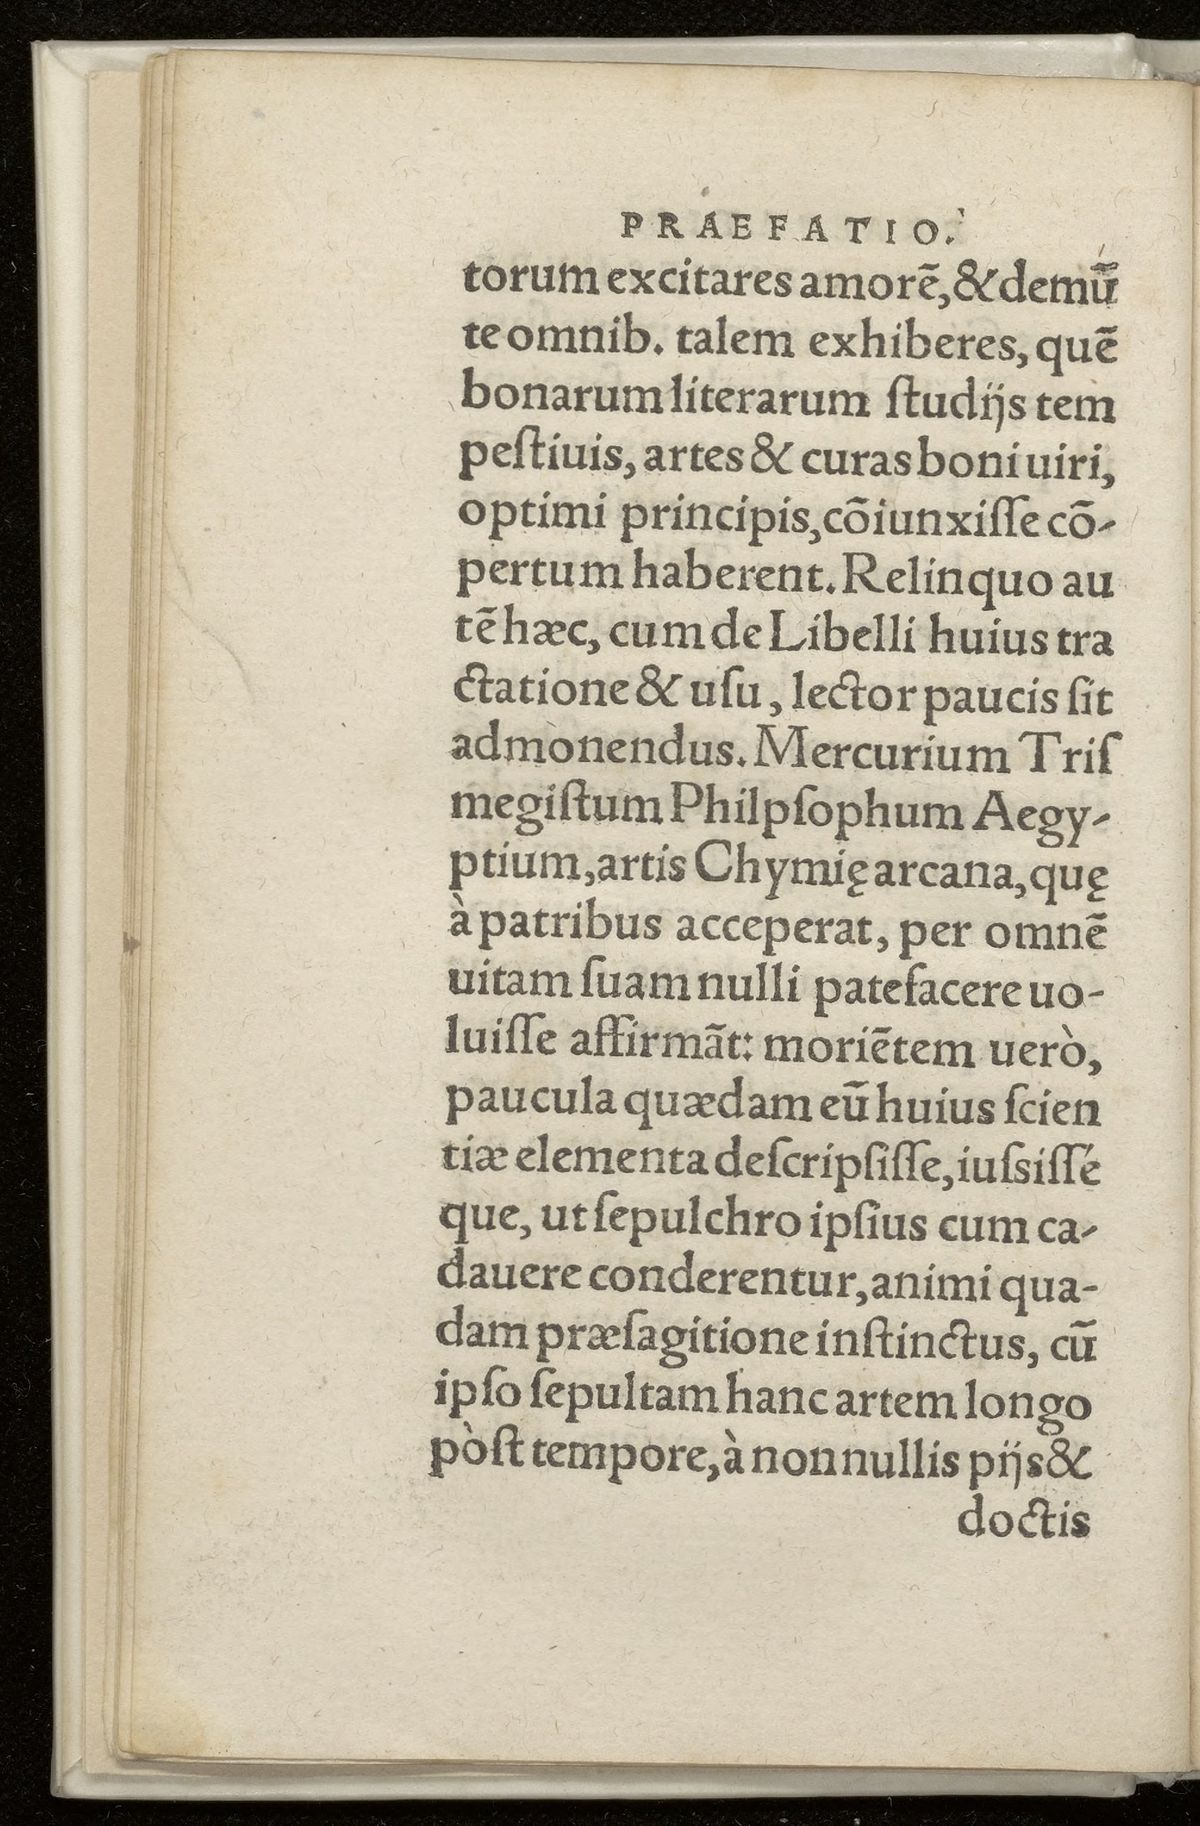 PRAEFATIO.
torum excitares amorē, & demū
te omnib. talem exhiberes, quē
bonarum literarum ſtudijs tem
peſtiuis, artes & curas boni uiri,
optimi principis, cōiunxiſſe cō-
pertum haberent. Relinquo au
tē hæc, cum de Libelli huius tra
ctatione & uſu, lector paucis ſit
admonendus. Mercurium Triſ
megiſtum Philpſophum Aegy-
ptium, artis Chymię arcana, quę
à patribus acceperat, per omnē
uitam ſuam nulli patefacere uo-
luiſſe affirmāt: moriētem uerò,
paucula quædam eū huius ſcien
tiæ elementa deſcripſiſſe, iuſsiſſé
que, ut ſepulchro ipſius cum ca-
dauere conderentur, animi qua-
dam præſagitione inſtinctus, cū
ipſo ſepultam hanc artem longo
pòſt tempore, à nonnullis pijs &
doctis